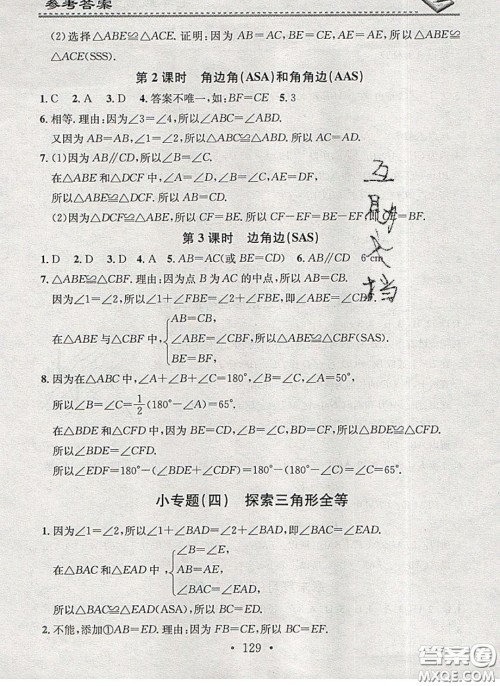 参考答案
(2)选择△ABE≌△ACE. 证明:因为 AB=AC,BE=CE,AE=AE,所以
△ABE≌△ACE(SSS).
第2课时 角边角(ASA)和角角边(AAS)
1. C 2. A 3. D 4. 答案不唯一,如:BF=CE 5. 3
6. 相等. 理由:因为∠3=∠4,所以∠ABC=∠ABD.
又因为 AB=AB,∠1=∠2,所以△ABC≌△ABD. 所以 AC=AD.
7. (1)因为 AB∥CD,所以∠B=∠C.
在△ABE 和△DCF 中,∠A=∠D,∠B=∠C,AE=DF,
所以△ABE≌△DCF. 所以 AB=CD.
(2)因为△DCF≌△ABE,所以 CF=BE. 所以 CF-EF=BE-EF,即 CE=BF.
第3课时 边角边(SAS)
1. D 2. D 3. D 4. A 5. AB=AC(或 BE=CD) 6. AB∥CD 6 cm
7. △ABE≌△CBF. 理由:因为点 B 为 AC 的中点,所以 AB=CB.
因为∠1=∠2,所以∠1+∠FBE=∠2+∠FBE,即∠ABE=∠CBF.
在△ABE 与△CBF 中,
AB=CB,
∠ABE=∠CBF,所以△ABE≌△CBF(SAS).
BE=BF,
8. 因为在△ABC 中,∠A+∠B+∠C=180°,∠B=∠C,∠A=50°,
所以∠B=∠C=1/2(180°-∠A)=65°.
在△BDE 和△CFD 中,因为 BE=CD,∠B=∠C,BD=CF,所以△BDE≌△CFD.
所以∠BDE=∠CFD.
所以∠EDF=180°-(∠BDE+∠CDF)=180°-(180°-∠C)=∠C=65°.
小专题(四) 探索三角形全等
1. 因为∠1=∠2,所以∠1+∠BAD=∠2+∠BAD,即∠BAC=∠EAD.
在△BAC 和△EAD 中,
∠B=∠E,
AB=AE,
∠BAC=∠EAD,
所以△BAC≌△EAD(ASA),所以 BC=ED.
2. 不能,添加①AB=ED. 理由:因为 FB=CE,所以 BC=EF.
· 129 ·